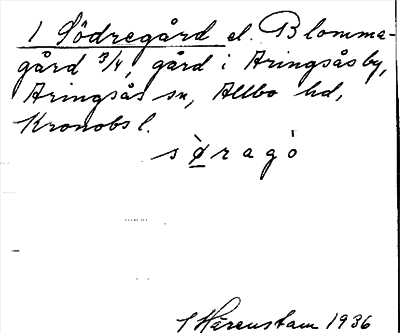 1 Södregård el. Blomma-
gård 3/4, gård i Aringsås by,
Aringsås sn, Allbo hd,
Kronobs l.
s ø̀ r a g ò
C Härenstam 1936